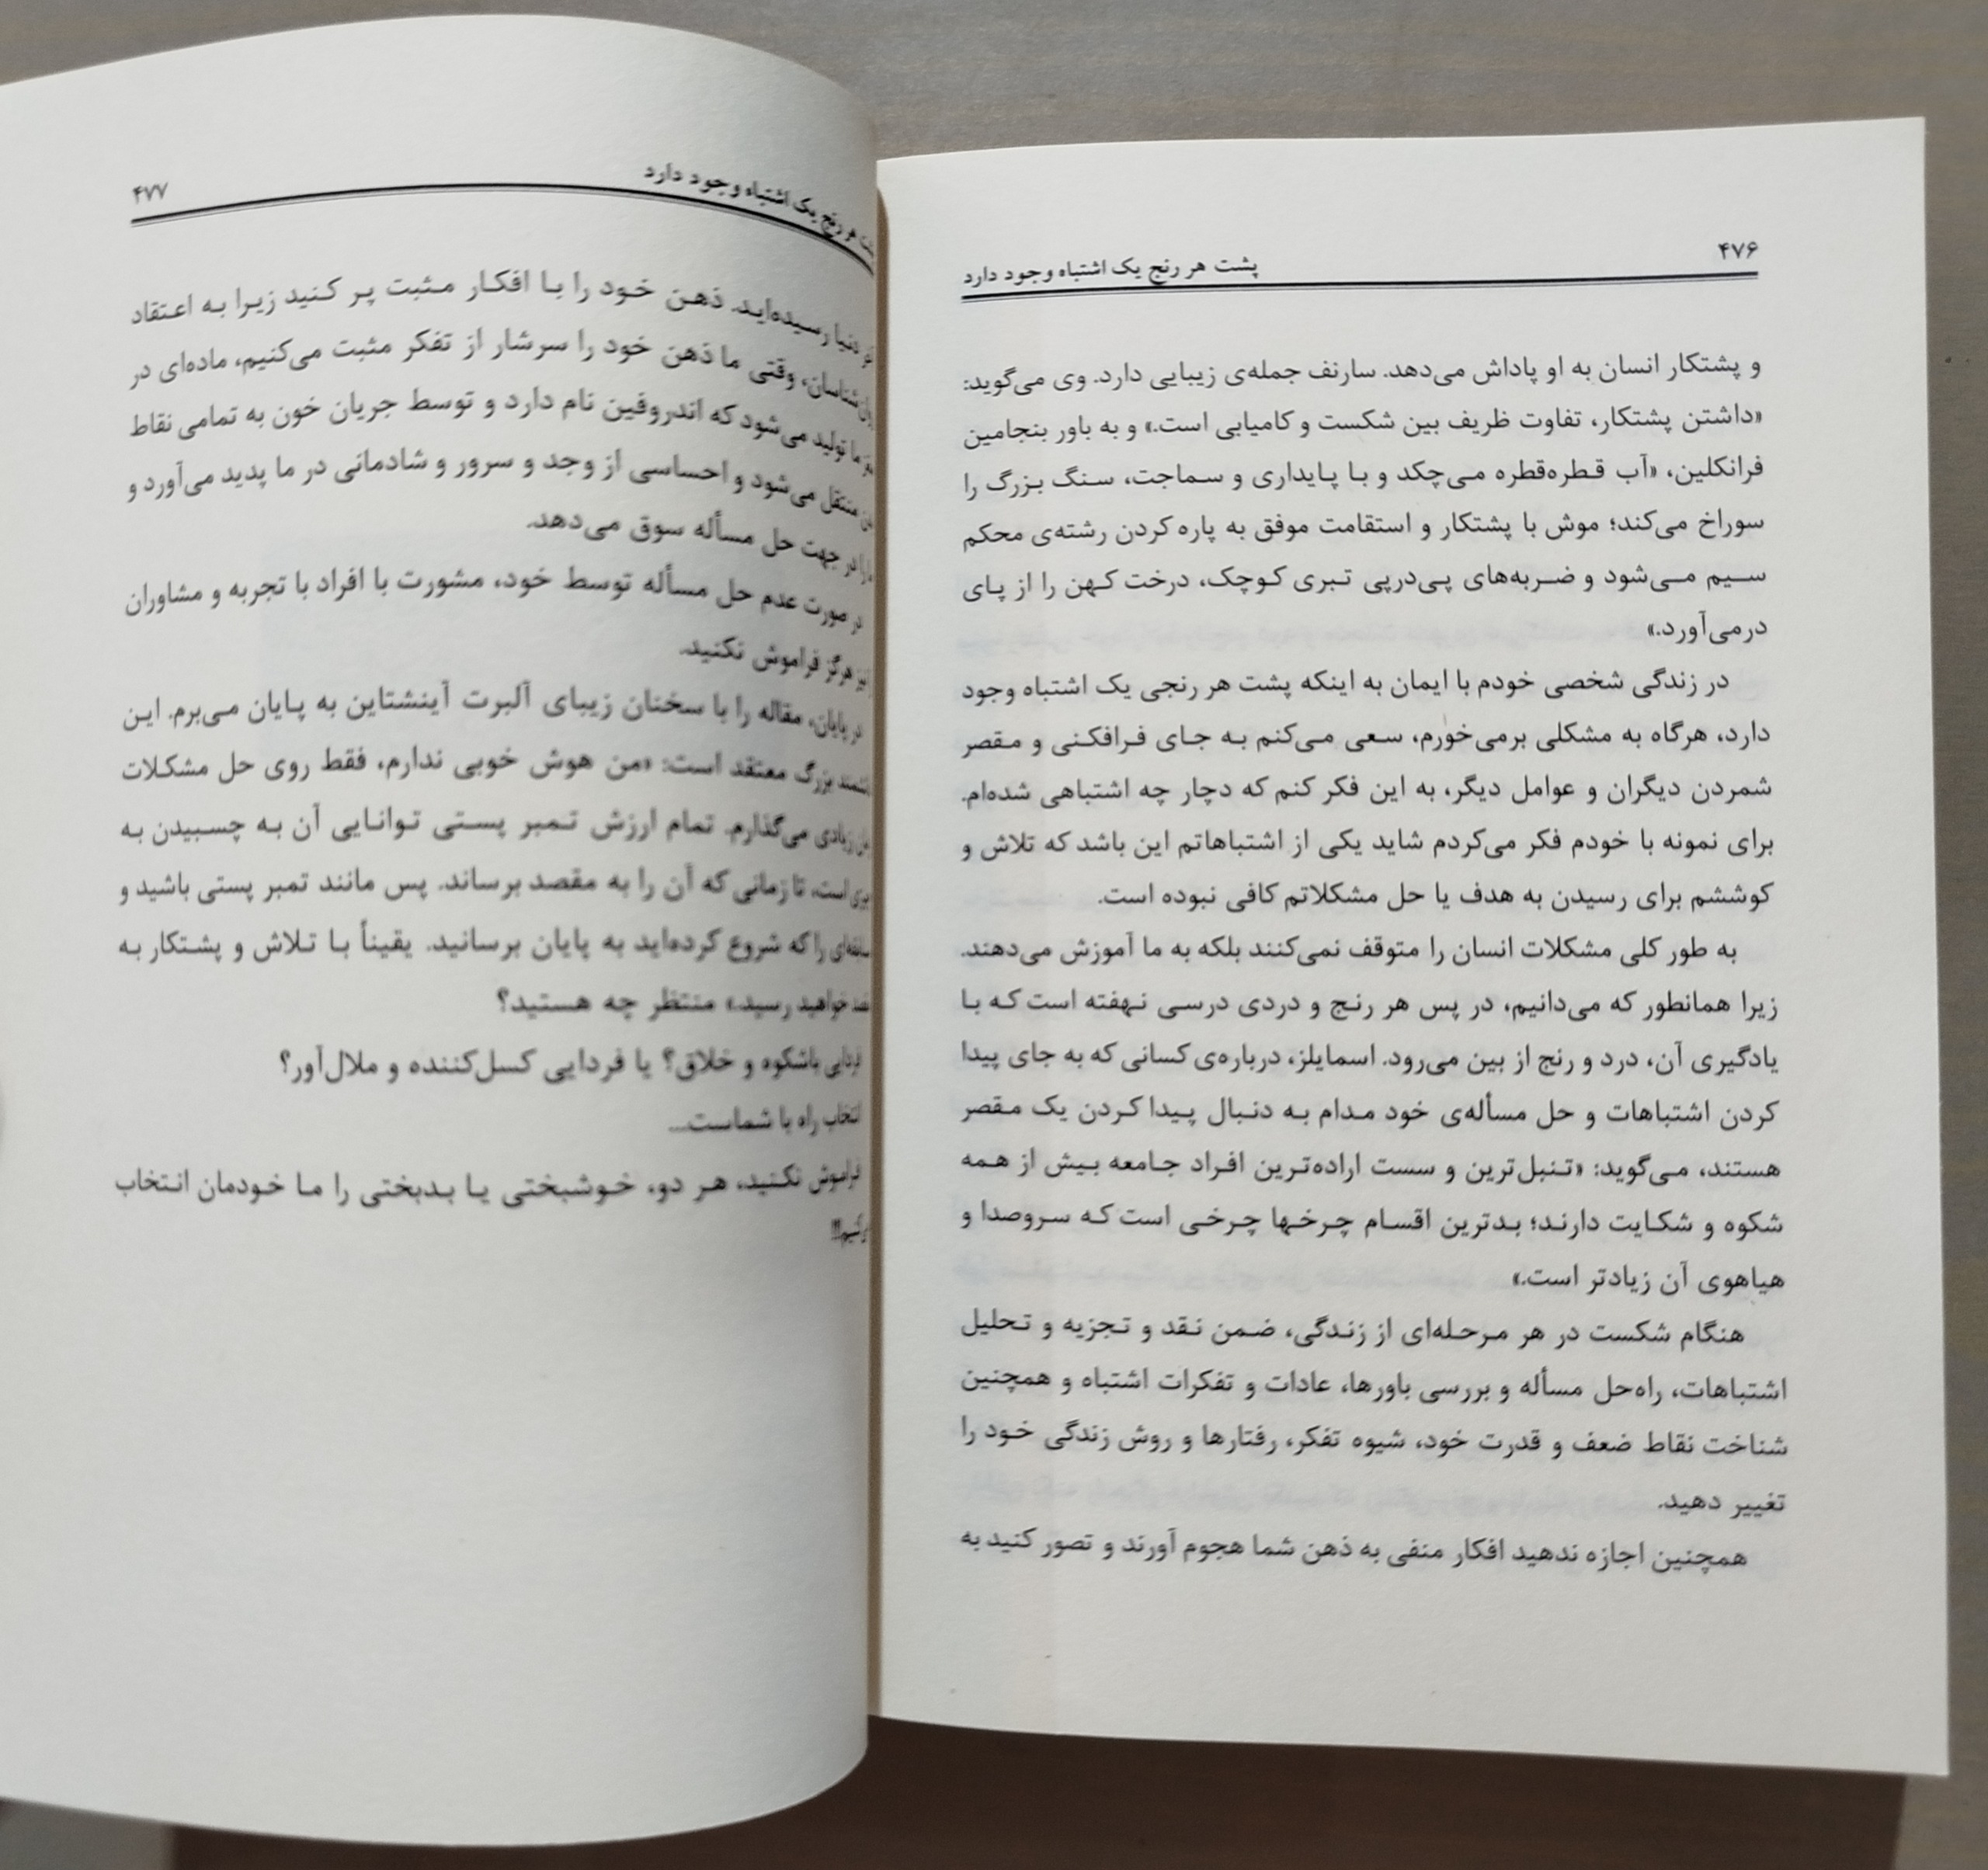 ۴۷۶
پشت هر رنج یک اشتباه وجود دارد
و پشتکار انسان به او پاداش می‌دهد. سارنف جمله‌ی زیبایی دارد. وی می‌گوید:
«داشتن پشتکار، تفاوت ظریف بین شکست و کامیابی است.» و به باور بنجامین
فرانکلین، «آب قطره‌قطره می‌چکد و با پایداری و سماجت، سنگ بزرگ را
سوراخ می‌کند؛ موش با پشتکار و استقامت موفق به پاره کردن رشته‌ی محکم
سیم می‌شود و ضربه‌های پی‌درپی تبری کوچک، درخت کهن را از پای
درمی‌آورد.»
در زندگی شخصی خودم با ایمان به اینکه پشت هر رنجی یک اشتباه وجود
دارد، هرگاه به مشکلی برمی‌خورم، سعی می‌کنم به جای فرافکنی و مقصر
شمردن دیگران و عوامل دیگر، به این فکر کنم که دچار چه اشتباهی شده‌ام.
برای نمونه با خودم فکر می‌کردم شاید یکی از اشتباهاتم این باشد که تلاش و
کوششم برای رسیدن به هدف یا حل مشکلاتم کافی نبوده است.
به طور کلی مشکلات انسان را متوقف نمی‌کنند بلکه به ما آموزش می‌دهند.
زیرا همانطور که می‌دانیم، در پس هر رنج و دردی درسی نهفته است که با
یادگیری آن، درد و رنج از بین می‌رود. اسمایلز، درباره‌ی کسانی که به جای پیدا
کردن اشتباهات و حل مسأله‌ی خود مدام به دنبال پیدا کردن یک مقصر
هستند، می‌گوید: «تنبل‌ترین و سست اراده‌ترین افراد جامعه بیش از همه
شکوه و شکایت دارند؛ بدترین اقسام چرخها چرخی است که سروصدا و
هیاهوی آن زیادتر است.»
هنگام شکست در هر مرحله‌ای از زندگی، ضمن نقد و تجزیه و تحلیل
اشتباهات، راه‌حل مسأله و بررسی باورها، عادات و تفکرات اشتباه و همچنین
شناخت نقاط ضعف و قدرت خود، شیوه تفکر، رفتارها و روش زندگی خود را
تغییر دهید.
همچنین اجازه ندهید افکار منفی به ذهن شما هجوم آورند و تصور کنید به
هر رنج یک اشتباه وجود دارد
۴۷۷
دنیا رسیده‌اید. ذهن خود را با افکار مثبت پر کنید زیرا به اعتقاد
وقتی ما ذهن خود را سرشار از تفکر مثبت می‌کنیم، ماده‌ای در
ما تولید می‌شود که اندروفین نام دارد و توسط جریان خون به تمامی نقاط
منتقل می‌شود و احساسی از وجد و سرور و شادمانی در ما پدید می‌آورد و
در جهت حل مسأله سوق می‌دهد.
در صورت عدم حل مسأله توسط خود، مشورت با افراد با تجربه و مشاوران
هرگز فراموش نکنید.
در پایان، مقاله را با سخنان زیبای آلبرت آینشتاین به پایان می‌برم. این
بزرگ معتقد است: «من هوش خوبی ندارم، فقط روی حل مشکلات
زیادی می‌گذارم. تمام ارزش تمبر پستی توانایی آن به چسبیدن به
است، تا زمانی که آن را به مقصد برساند. پس مانند تمبر پستی باشید و
را که شروع کرده‌اید به پایان برسانید. یقیناً با تلاش و پشتکار به
خواهید رسید.» منتظر چه هستید؟
فردایی باشکوه و خلاق؟ یا فردایی کسل‌کننده و ملال‌آور؟
انتخاب راه با شماست...
فراموش نکنید، هر دو، خوشبختی یا بدبختی را ما خودمان انتخاب